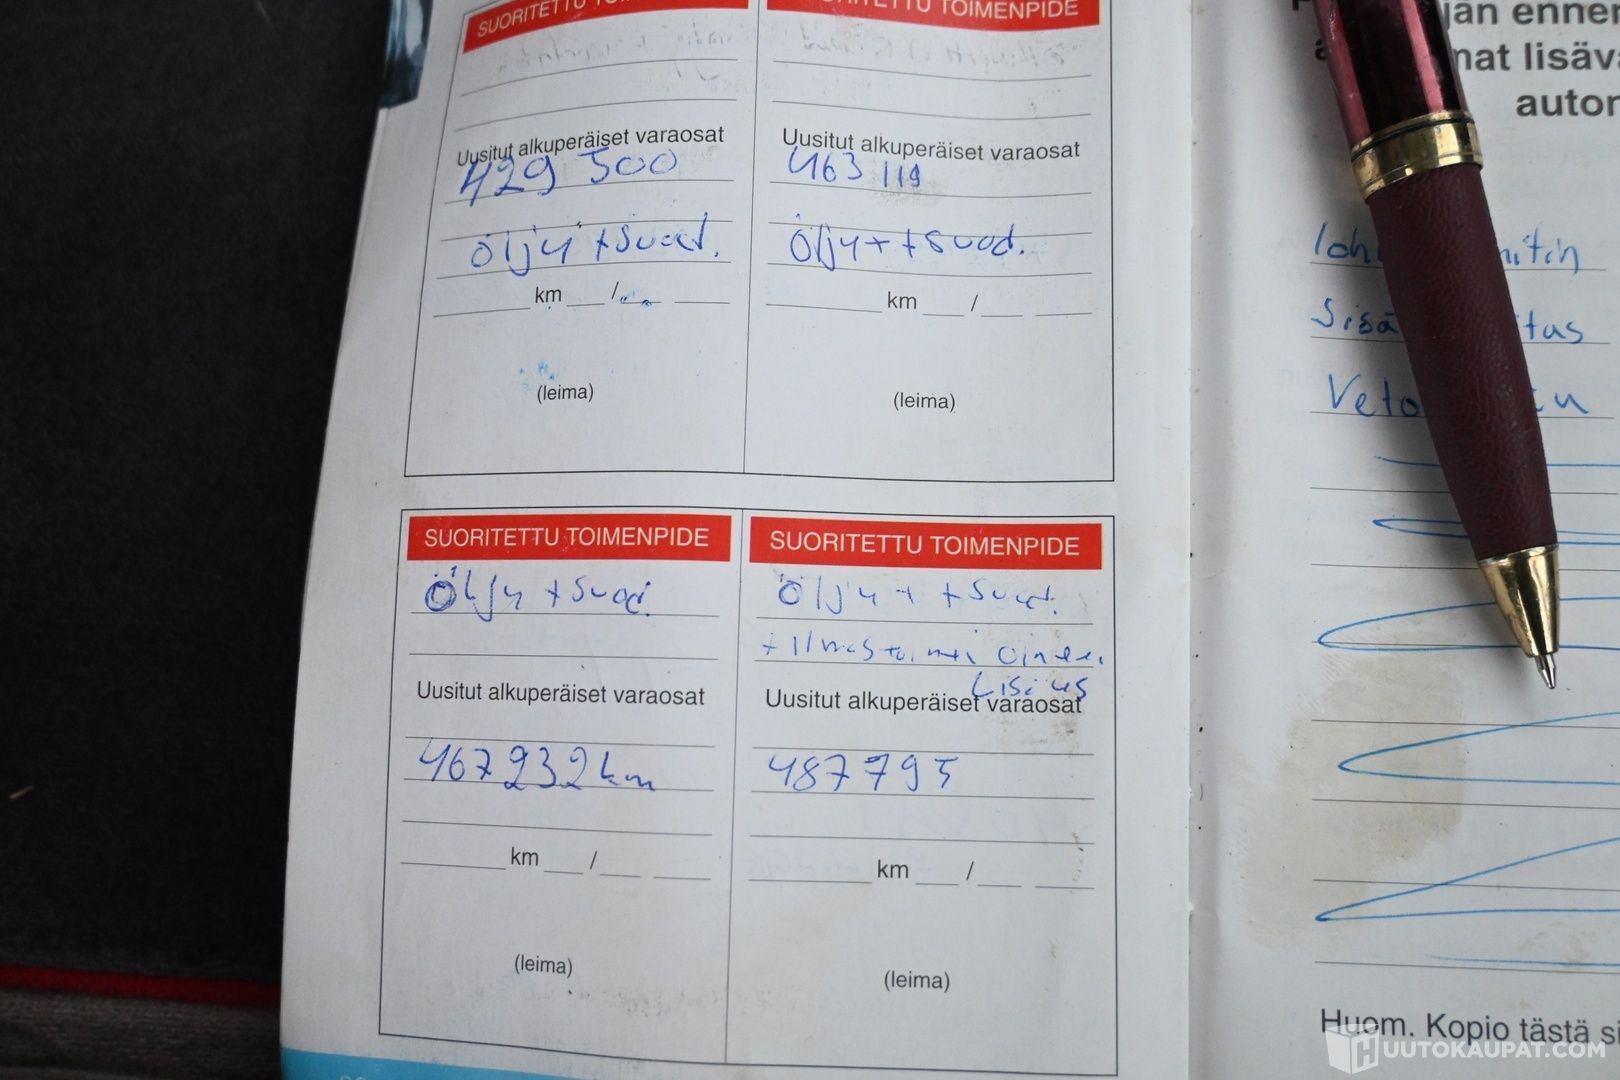 SUORITETTU TOIMENPIDE
Uusitut alkuperäiset varaosat
429 500
Öljy + suod.
km /
(leima)
TOIMENPIDE
Uusitut alkuperäiset varaosat
463 119
Öljyt + suod.
km /
(leima)
SUORITETTU TOIMENPIDE
Öljy + suod.
Uusitut alkuperäiset varaosat
467 232 km
km /
(leima)
SUORITETTU TOIMENPIDE
Öljyt + suod.
+ Ilmastoinnin
Lisäys
Uusitut alkuperäiset varaosat
487 795
km /
(leima)
jän enner
mat lisäva
autor
loh nitin
Sisä itus
Veto
Huom. Kopio tästä si
HUUTOKAUPAT.COM